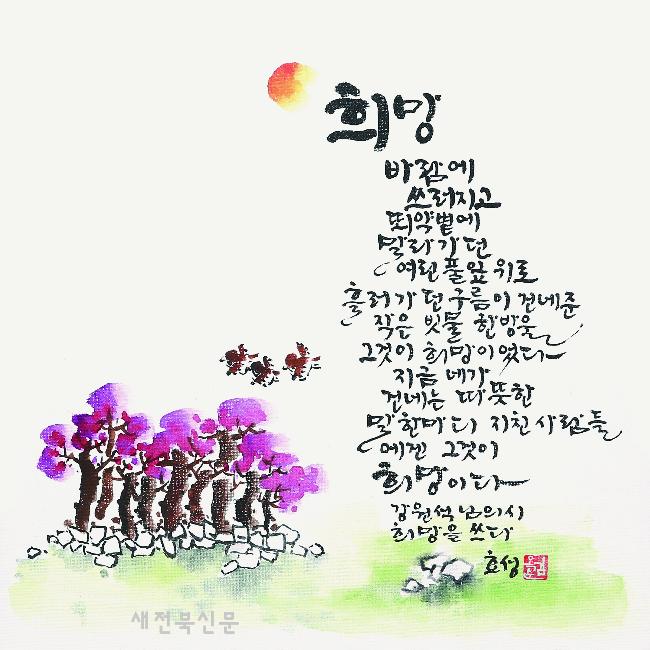 희망
바람에
쓰러지고
뙤약볕에
말라가던
여린 풀잎 위로
흘러가던 구름이 건네준
작은 빗물 한방울
그것이 희망이었다
지금 네가
건네는 따뜻한
말 한마디 지친 사람들
에겐 그것이
희망이다
강원석님의 시
희망을 쓰다
효성
새전북신문